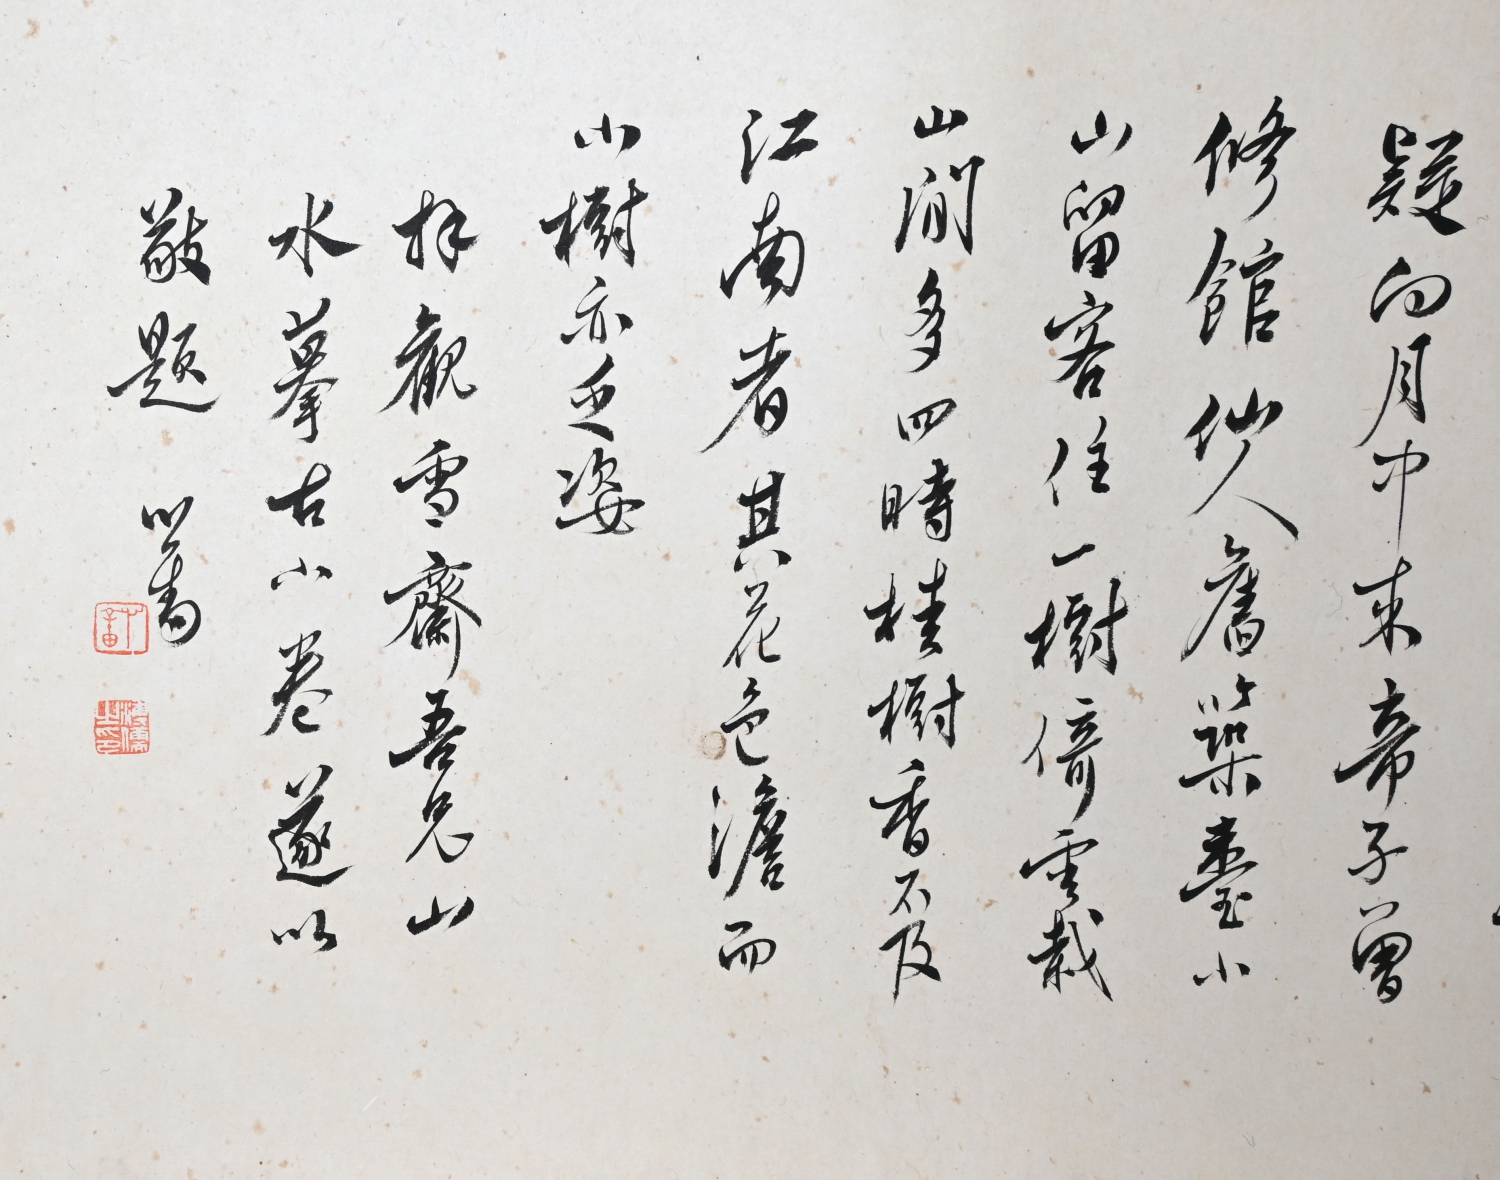 疑向月中来帝子曾
修館仙人舊築臺小
山留客住一樹倚雲栽
山間多四時桂樹香不及
江南者其花色澹而
小樹亦乏姿
拜觀雪齋吾兄山
水摹古小卷遂以
敬題 心畬